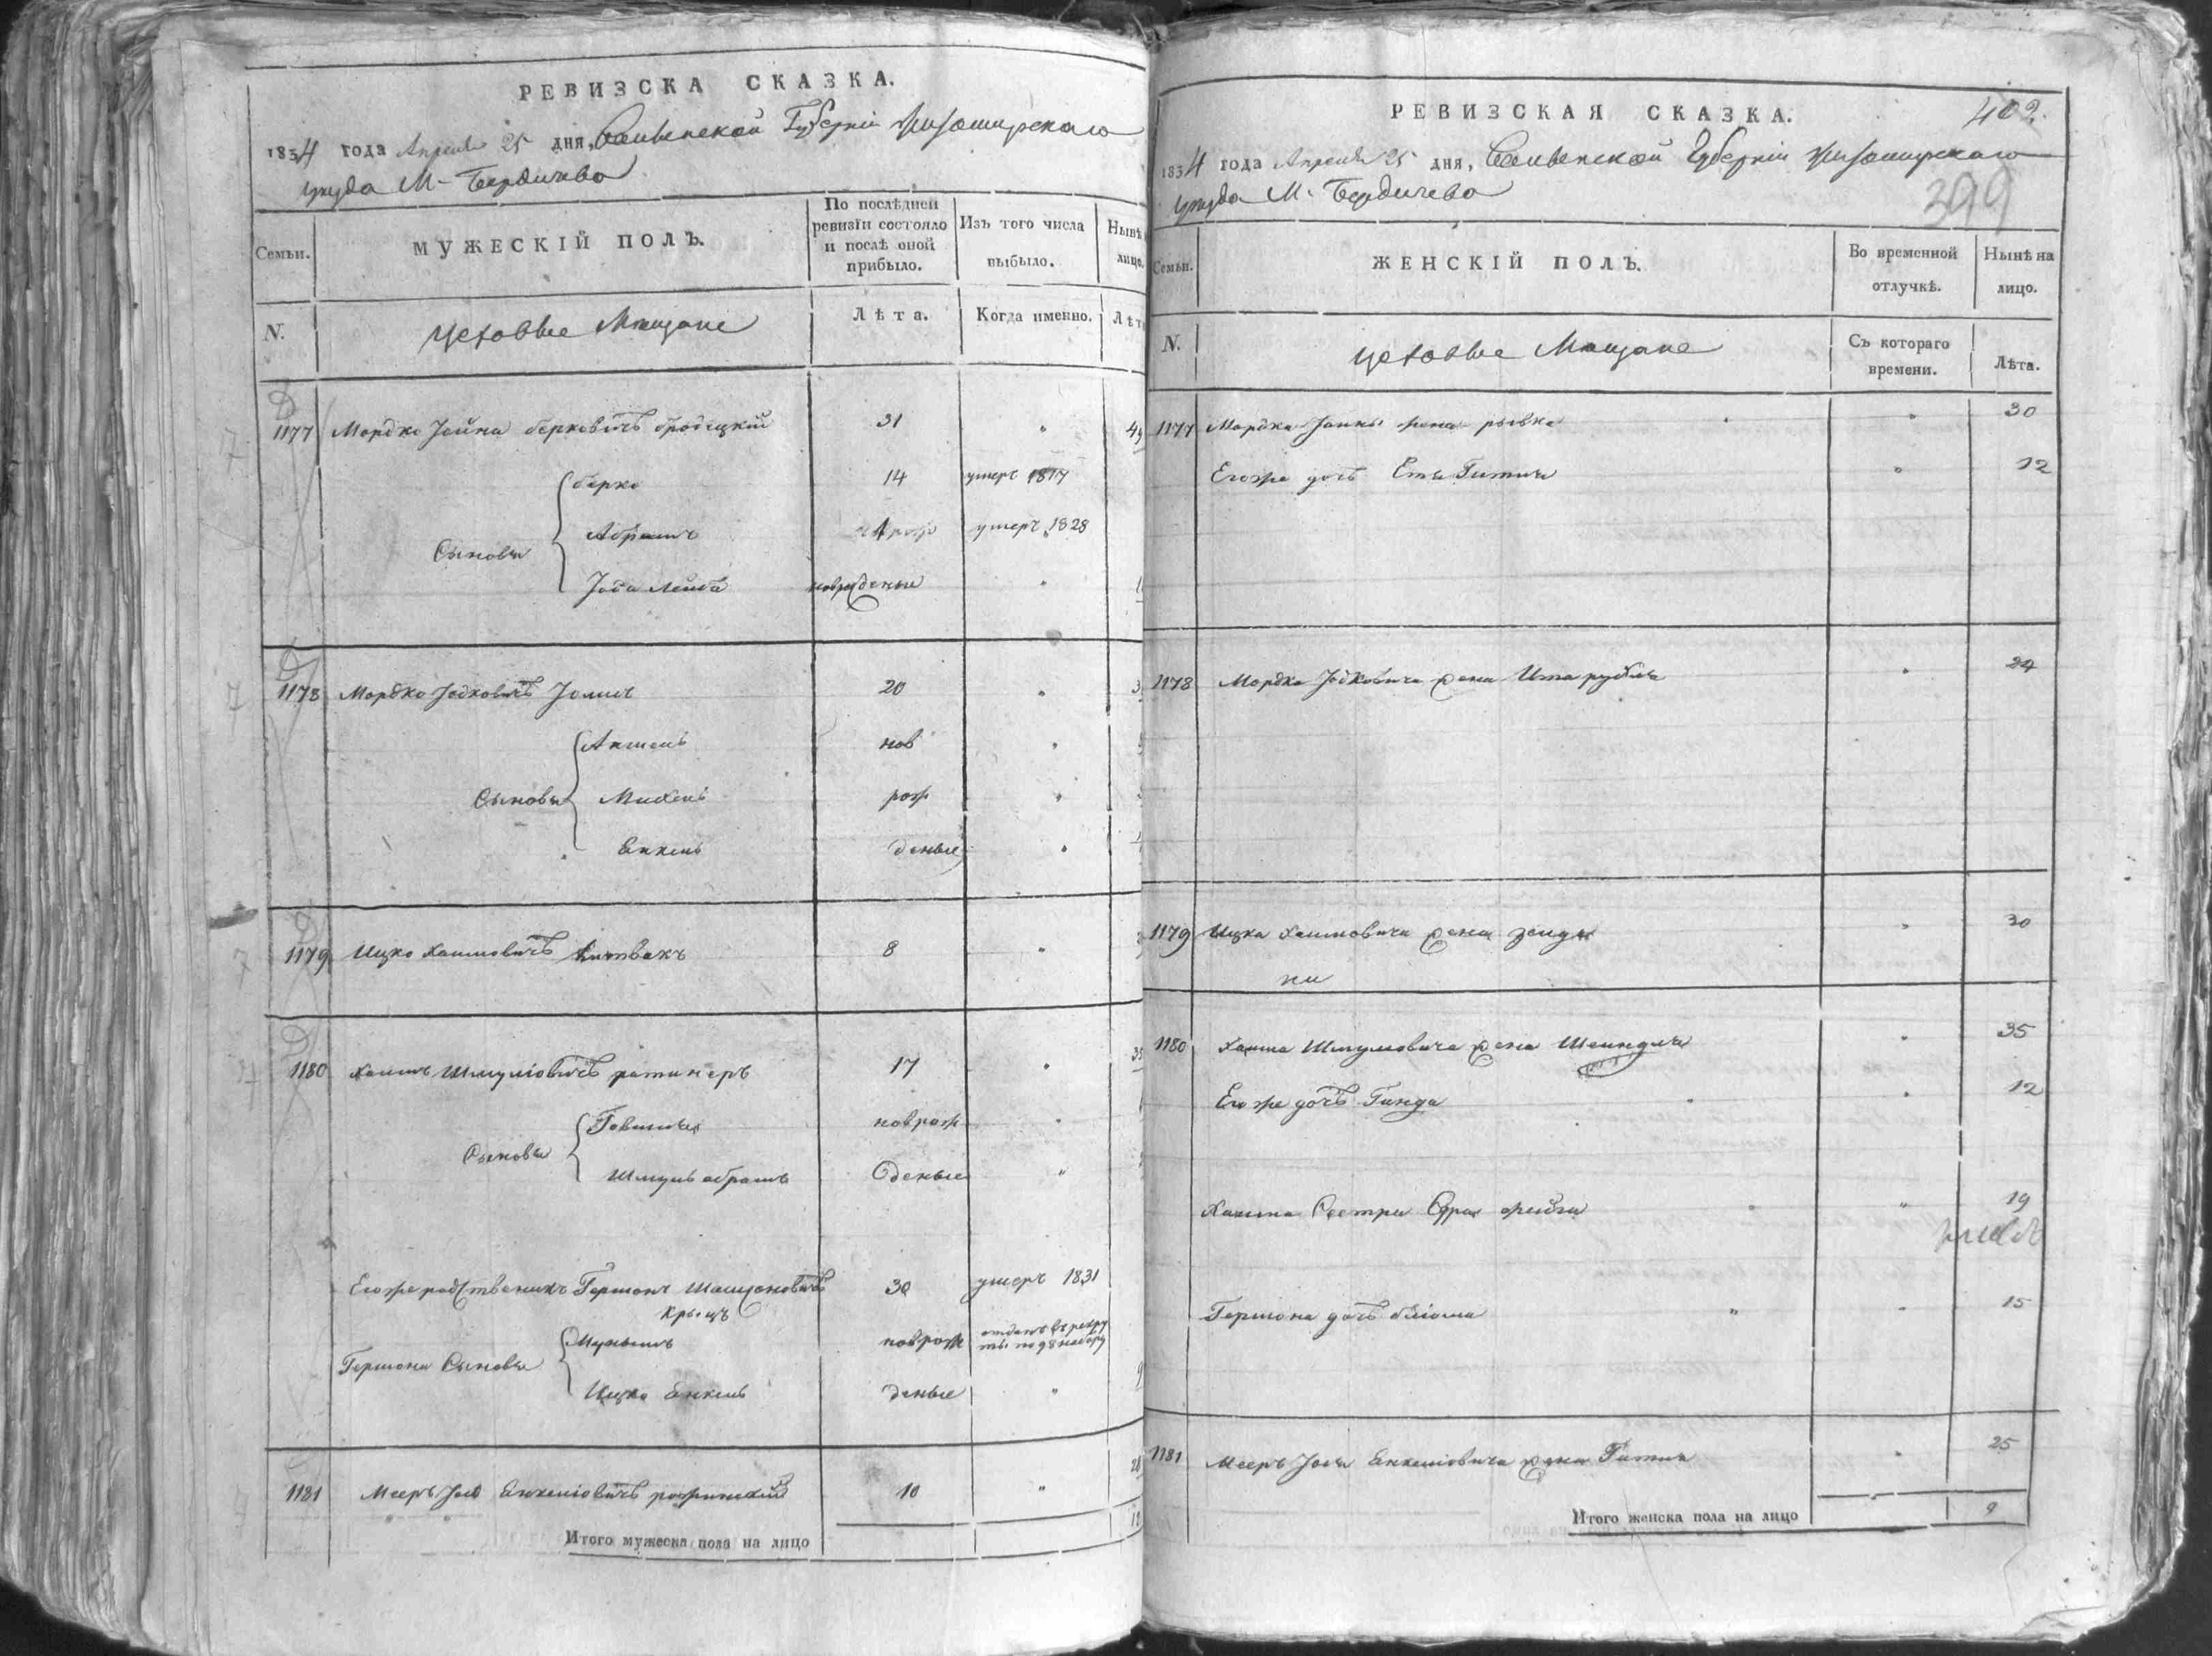 РЕВИЗСКА СКАЗКА.
1834 года Апреля 25 дня, Волынской Губернии Житомирского
уезда М. Бердичева
Семьи.
МУЖЕСКІЙ ПОЛЪ.
По послѣдней
ревизіи состояло
и послѣ оной
прибыло.
Изъ того числа
выбыло.
Нынѣ
лицо.
N.
Цеховые Мещане
Лѣта.
Когда именно.
Лѣт
1177 Мордко Іойна берковичъ бродецкій 31 " 49
берко 14 умеръ 1817
Абрамъ умеръ 1828
Сыновья
Іось Лейба новрожденые "
1178 Мордко Іоськовичъ 20 " 3
Аншель нов "
Сыновья Михель рож "
Енкель деные "
1179 Ицко Хаимовичъ Литвакъ 8 "
1180 Хаимъ Шмулiовичъ ратинеръ 17 " 35
новрож "
Сыновья
Шмуль абрамъ деные "
Егоже родственикъ Гершонъ 30 умеръ 1831
новрож отданъ в рекру
ты по 98 набору
Гершона Сыновья
Ицко Енкель деные "
1181 Мееръ Іось Енкелiовичъ 10 " 28
Итого мужеска пола на лицо 12
РЕВИЗСКАЯ СКАЗКА.
402.
1834 года Апреля 25 дня, Волынской Губернии Житомирского
уезда М. Бердичева
399
Семьи.
ЖЕНСКІЙ ПОЛЪ.
Во временной
отлучкѣ.
Нынѣ на
лицо.
N.
Цеховые Мещане
Съ котораго
времени.
Лѣта.
1177 Мордка Іойны жена рывка " 30
Егоже дочь Етя Гитля " 12
1178 Мордка Іоськовича жена Ита рухля " 29
1179 Ицка Хаимовича жена " 30
1180 Хаима Шмулiовича жена Шейндля " 35
Егоже дочь Гинда " 12
Хаима Сестра фейга " 19
Гершона дочь блюма " 15
1181 Мееръ Іося Енкелiовича жена Гитля " 25
Итого женска пола на лицо 9